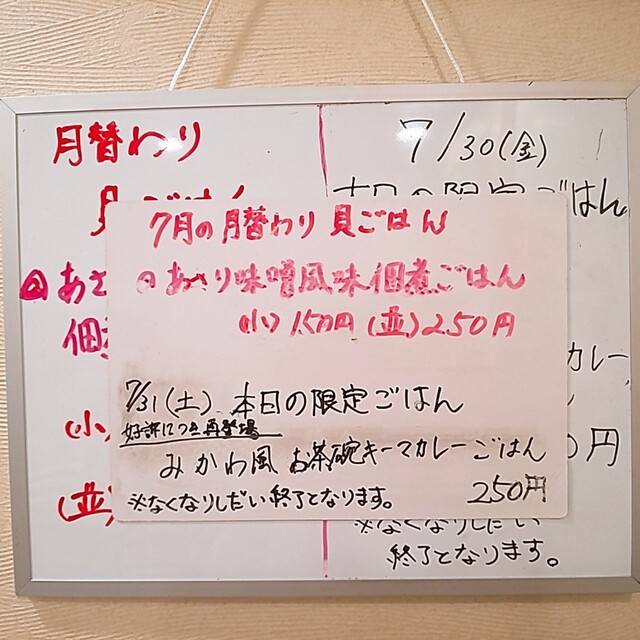 月替わり
7/30(金)
ごはん
7月の月替わり 貝ごはん
あさり味噌風味佃煮ごはん
(小)150円 (並)250円
あさ
佃
カレー
7/31(土) 本日の限定ごはん
好評につき再登場
(小)
円
みかわ風 お茶碗キーマカレーごはん
250円
※なくなりしだい終了となります。
(並)
※なくなりしだい
終了となります。